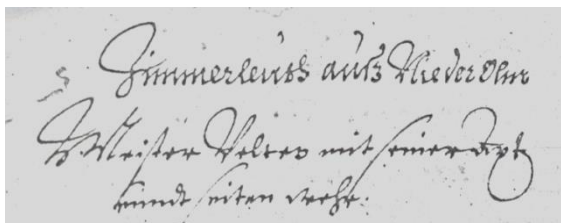 Zimmerleuth auß Nieder Olm
Meister Velten mit seiner Axt
unndt seiten wehr.